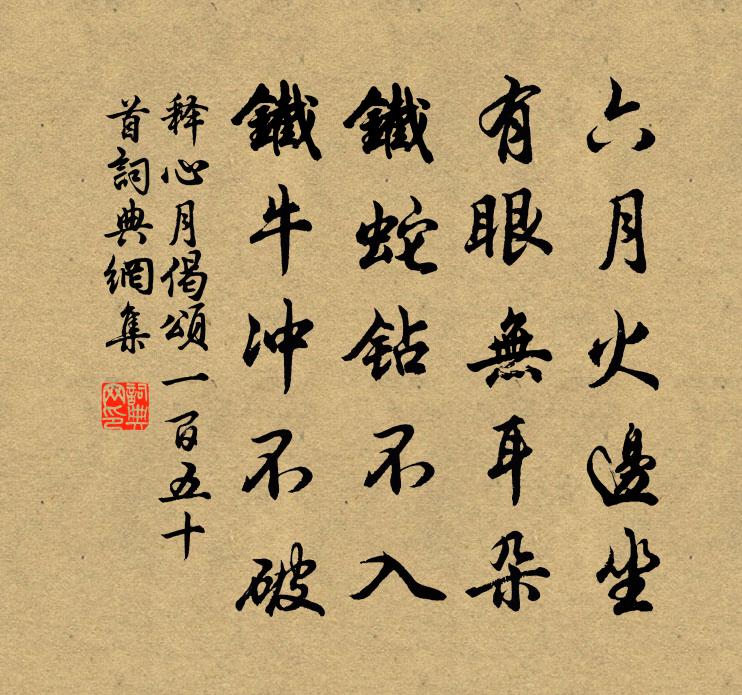 六月火邊坐
有眼無耳朵
鐵蛇钻不入
鐵牛冲不破
释心月偈頌一百五十
首詞典網集
詞典網印